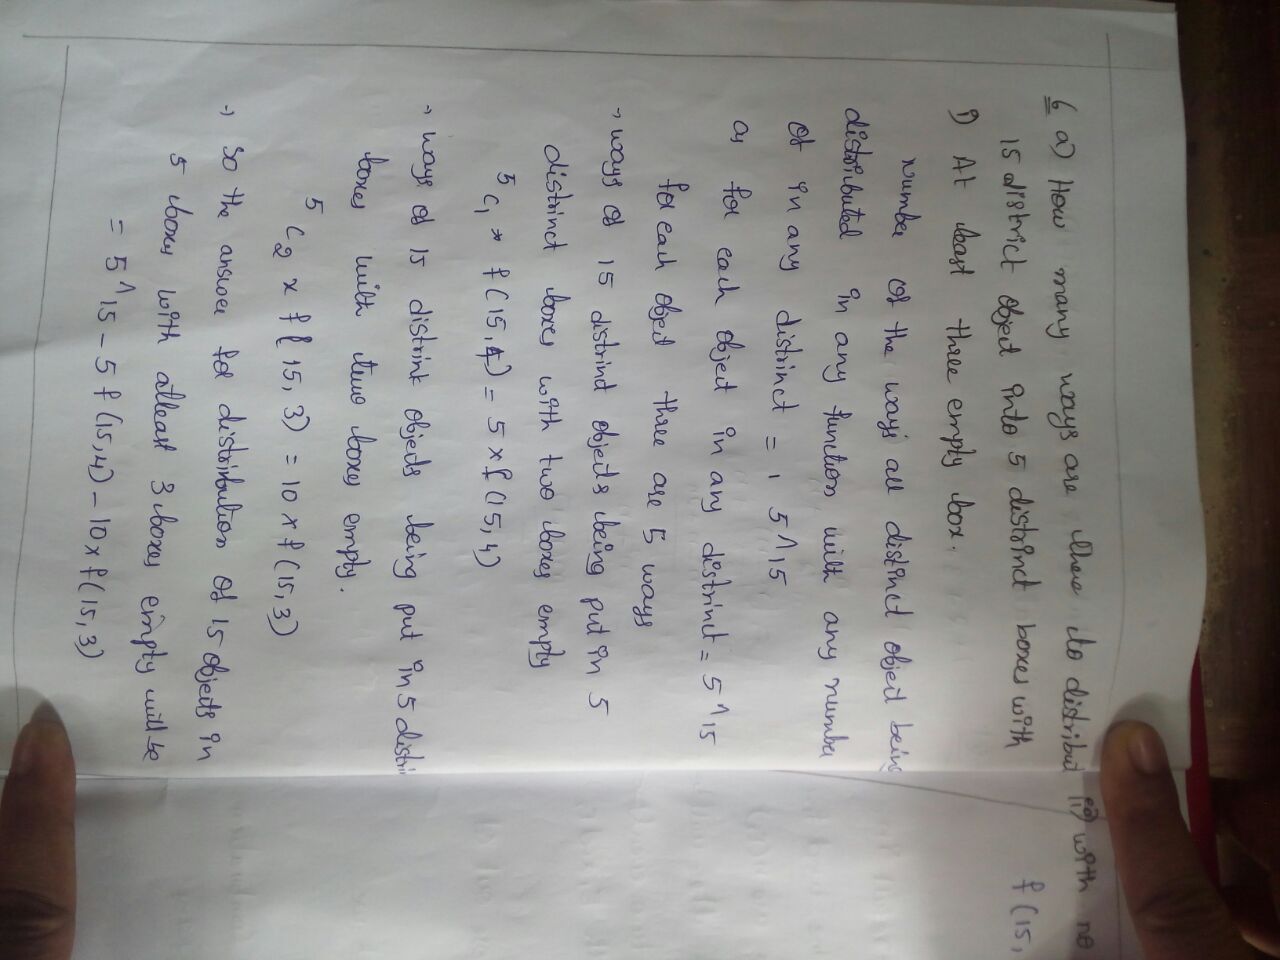 6 a) How many ways are there to distribut
15 district object into 5 distrinct boxes with
i) At least three empty box.
number of the ways all distinct object being
distributed in any function with any number
of in any distrinct = 1 5^15
as for each object in any distrinct = 5^15
for each object three are 5 ways
→ ways of 15 distrind objects being put in 5
distrinct boxes with two boxes empty
5c1 * f(15,4) = 5 x f(15,4)
→ ways of 15 distrint objects being put in 5 distri
boxes with two boxes empty.
5c2 x f(15, 3) = 10 x f(15,3)
→ So the answer for distribution of 15 objects in
5 boxes with atleast 3 boxes empty will be
= 5^15 - 5 f(15,4) - 10 x f(15,3)
ii) with no
f(15,